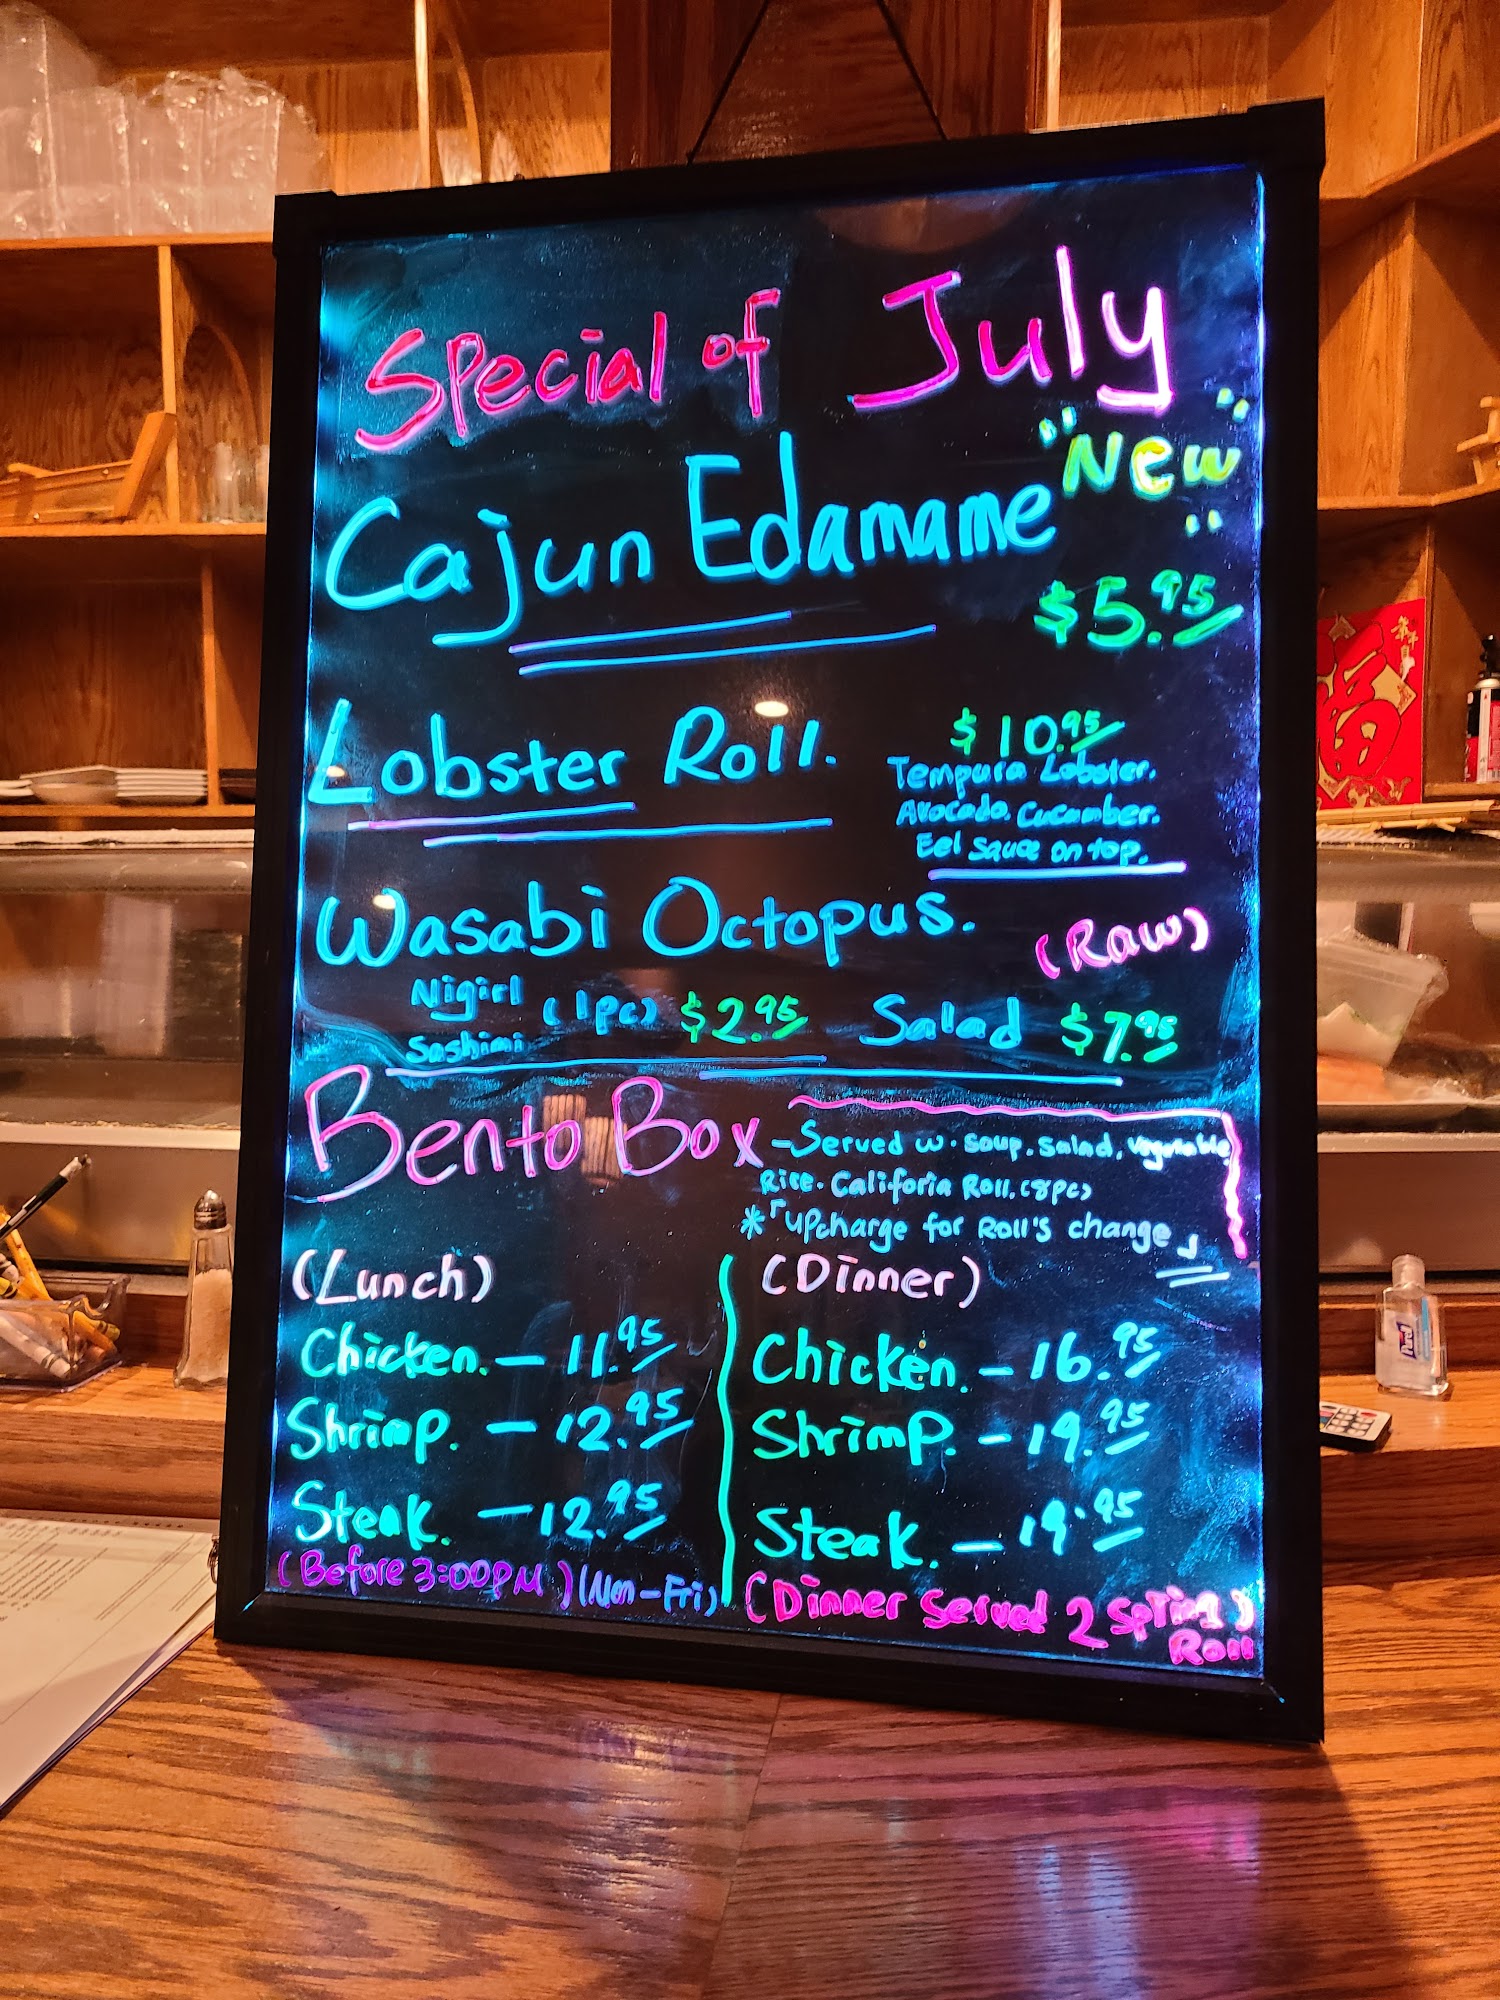 Special of July
"New"
Cajun Edamame
$5.95
Lobster Roll.
$10.95
Tempura Lobster.
Avocado. Cucumber.
Eel Sauce on top.
Wasabi Octopus.
(Raw)
Nigiri
Sashimi
(1pc) $2.95
Salad $7.95
Bento Box
-Served w. soup. salad. vegetable
Rice. Califoria Roll. (8pc)
*「upcharge for Roll's change」
(Lunch)
Chicken. - 11.95
Shrimp. - 12.95
Steak. - 12.95
(Before 3:00PM) (Mon-Fri)
(Dinner)
Chicken. - 16.95
Shrimp. - 19.95
Steak. - 19.95
(Dinner Served 2 Spring)
Roll
福